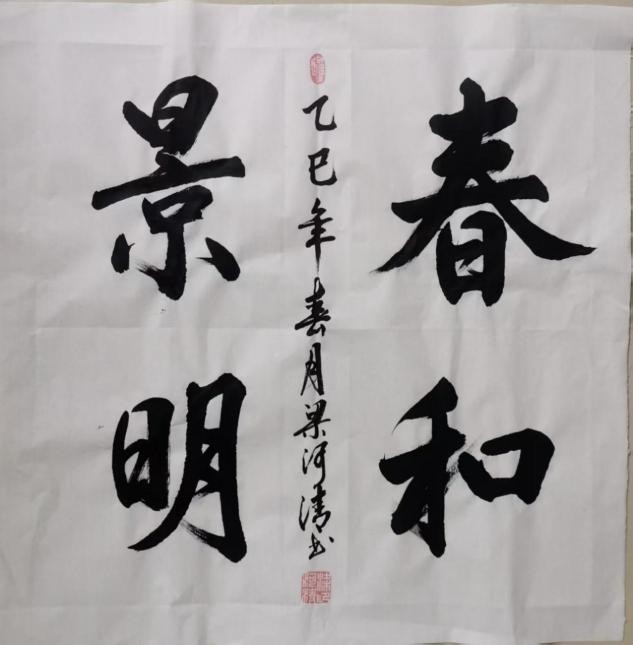 春和
景明
乙巳年春月梁河清书